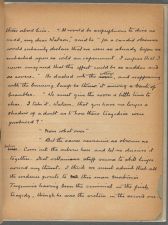 these about him. "It would be superfluous to drive us
mad, my dear Watson," said he. "A candid observer
would certainly declare that we were so already before we
embarked upon so wild an experiment. I confess that I
never imagined that the effect could be so sudden and
so severe." He dashed into the cottage, and reappeared
with the burning lamp held at
"We must give the room a little time to
clear. I take it, Watson, that you have no longer a
shadow of a doubt as to how these tragedies were
produced?"
"None whatever."
"But the cause remains as obscure as
before. Come into the arbour here and let us discuss it
together. That villainous stuff seems to still linger
around my throat. I think we must admit that all
the evidence points to this man, Mortimer
Tregennis having been the criminal in the first
tragedy, though he was the victim in the second one.